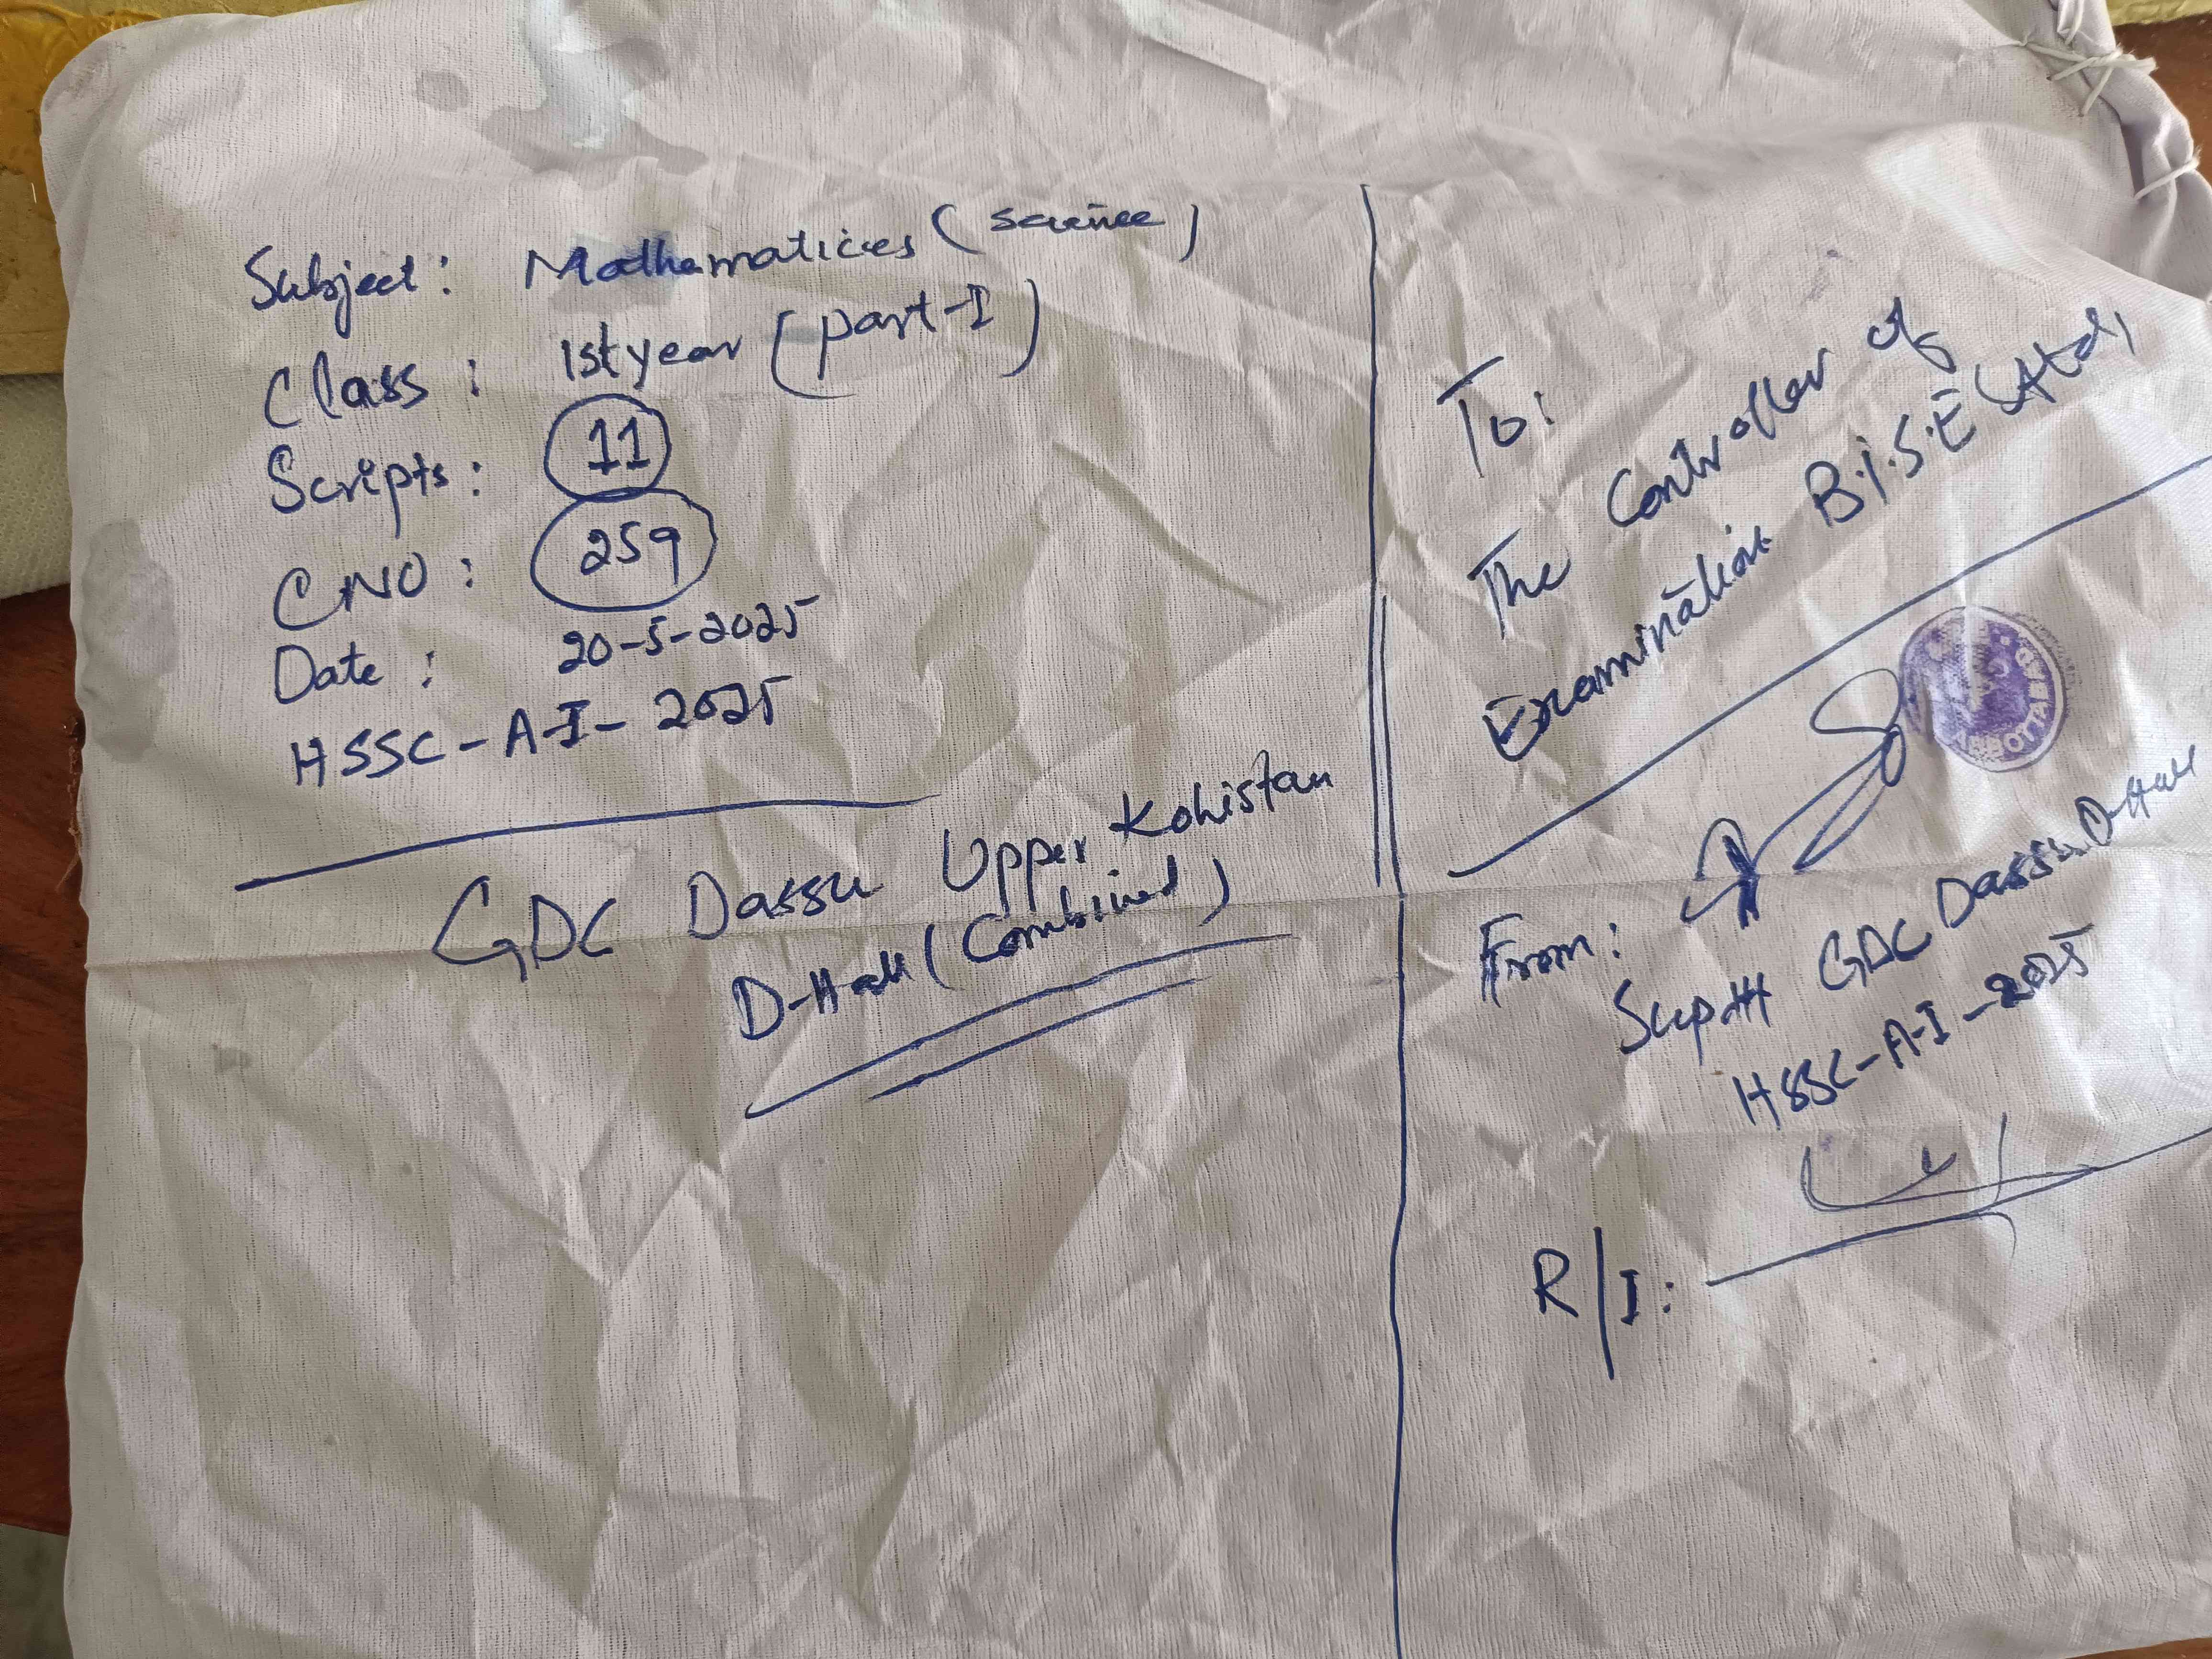 Subject: Mathematices (Science)
Class: 1st year (part-I)
Scripts: 11
CNO: 259
Date: 20-5-2025
HSSC-A-I-2025
GDC Dassu Upper Kohistan
D-Hall (Combined)
To:
The Controller of
Examination B.I.S.E (Atd)
ABBOTTABAD
From:
Supdtt GDC Dassu D-Hall
HSSC-A-I-2025
R/I: